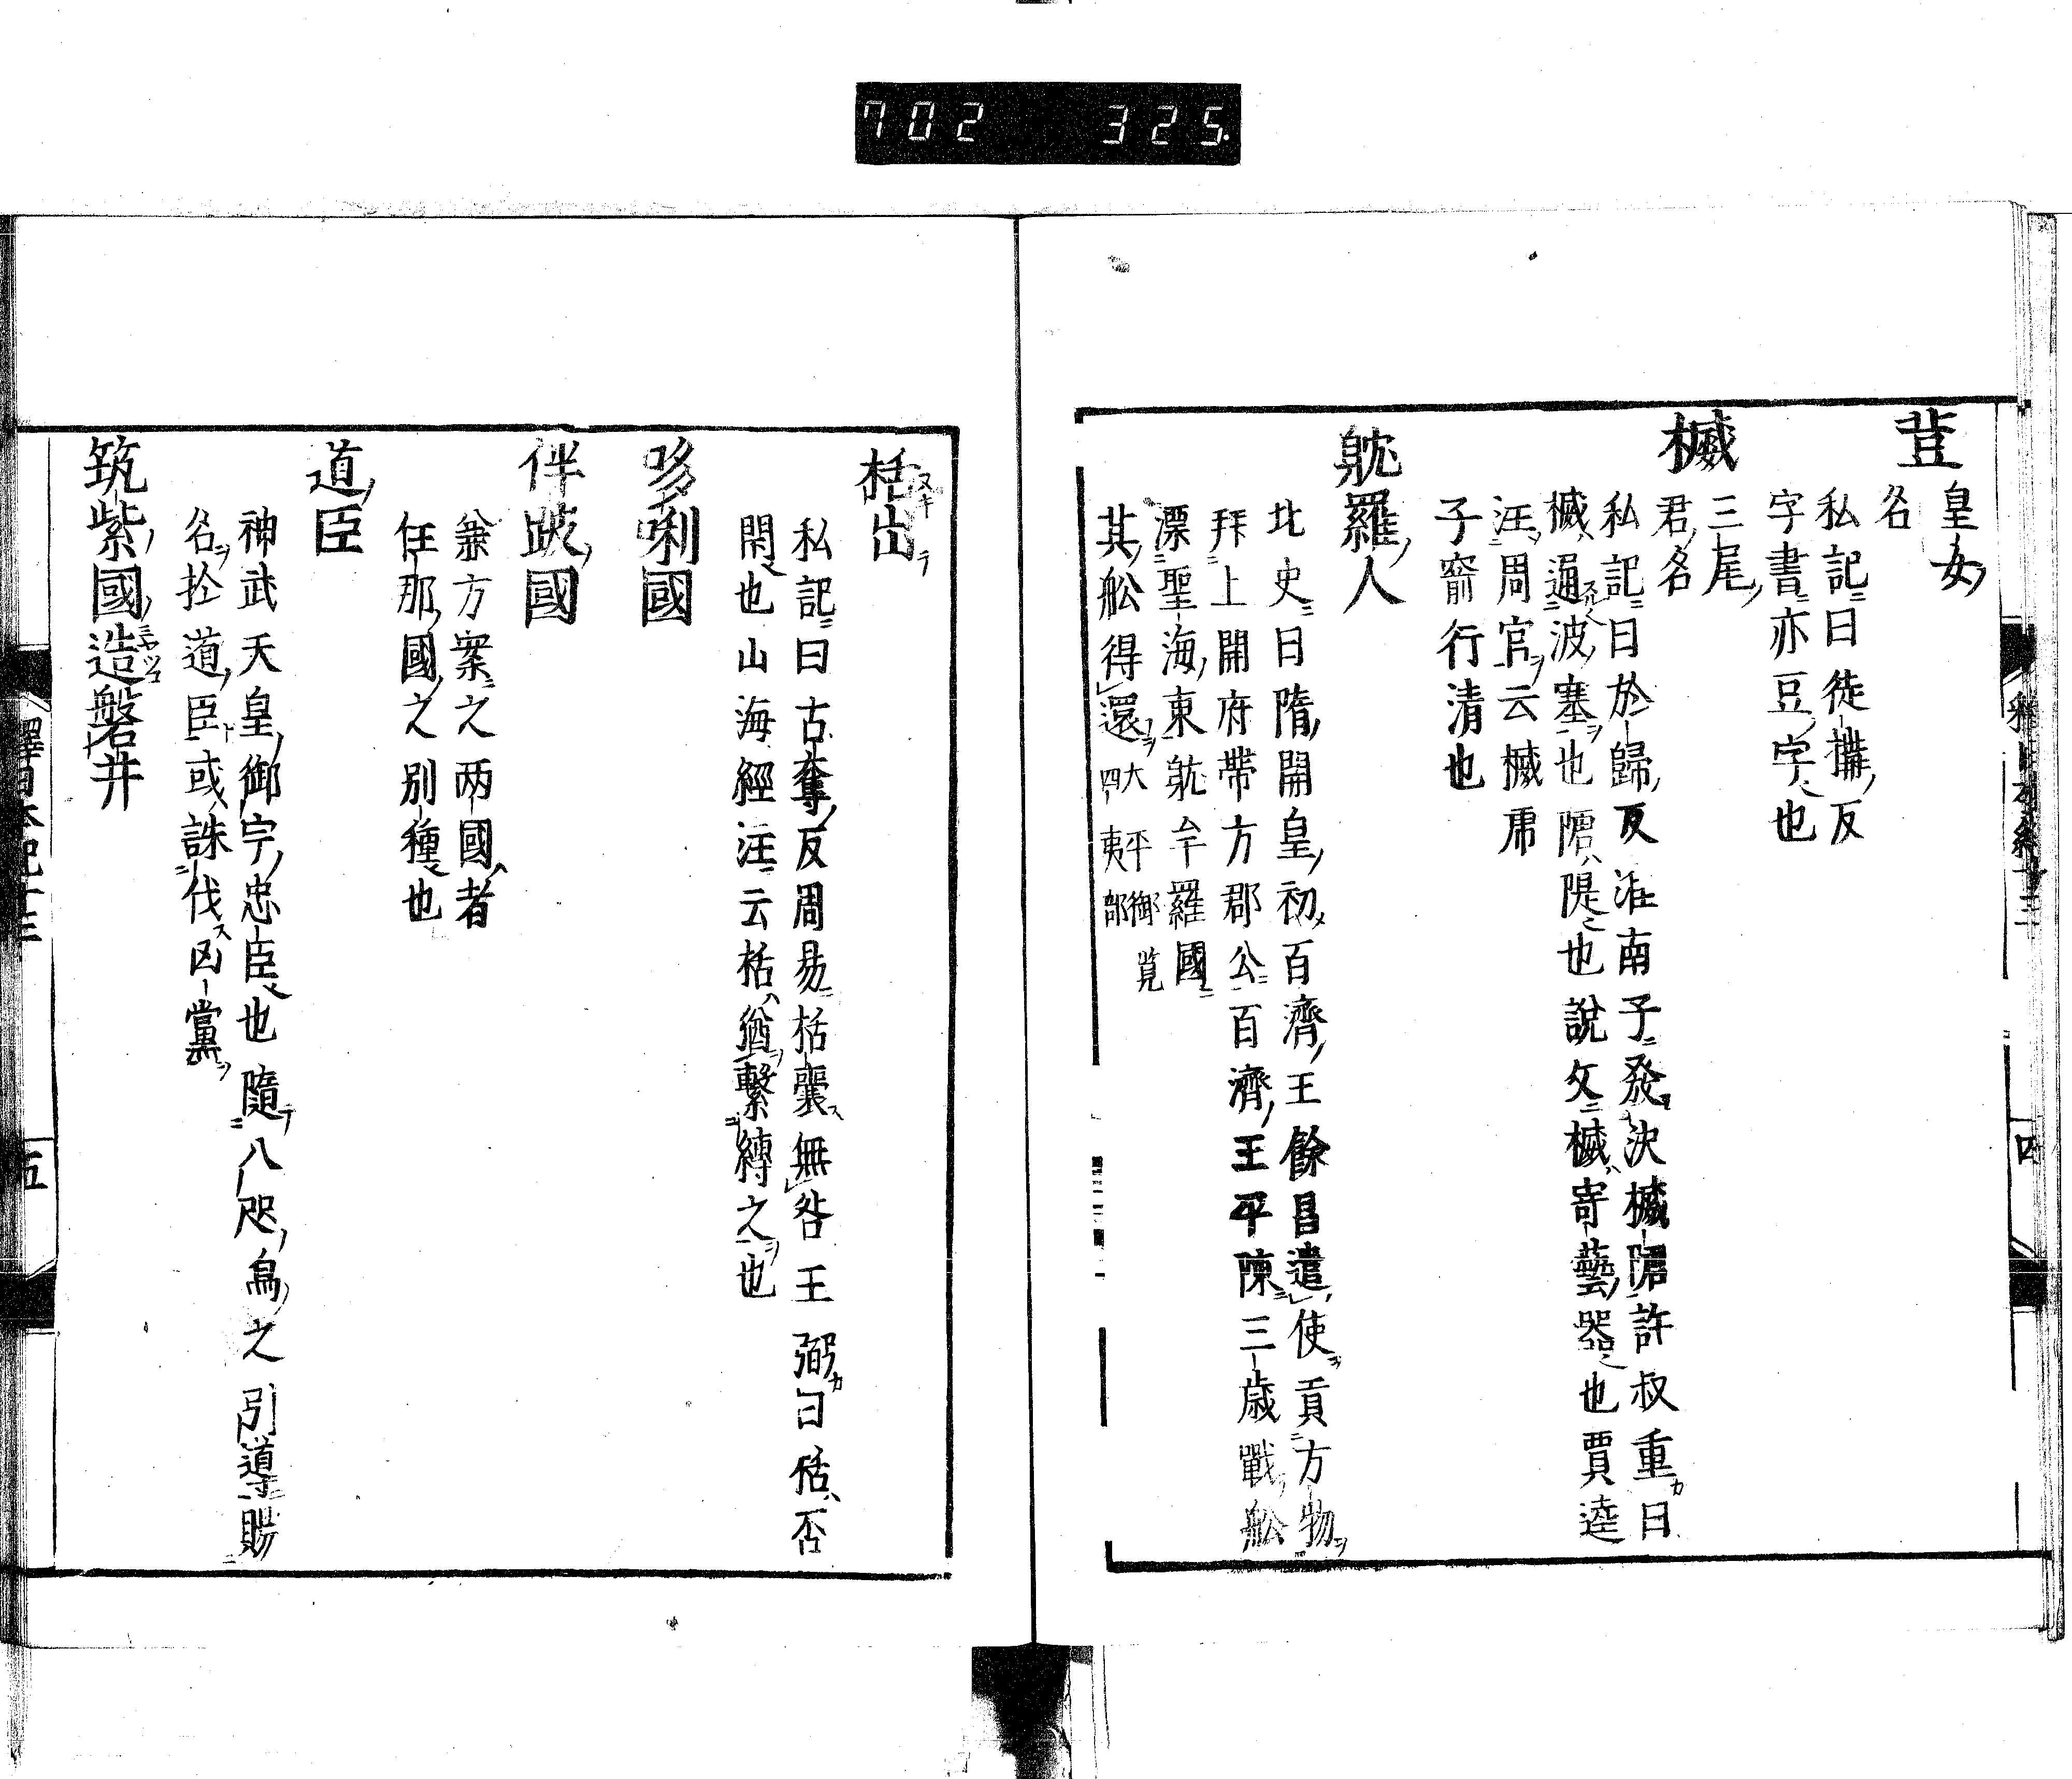 702 325
荳 皇女名
私記曰徒搆反
字書亦豆字也
楲 三尾君名
私記曰於歸反淮南子發決楲䧟許叔重曰
楲通波塞也䧟隄也說文楲寄藝器也賈逵
注周官云楲虎
子窬行清也
躭羅人
北史曰隋開皇初百濟王餘昌遣使貢方物
拜上開府帶方郡公百濟王平陳三歲戰舩
漂聖海東躭牟羅國
其舩得還 大平御覧四夷部
栝出
私記曰古奪反周易栝囊無咎王弼曰栝否
閑也山海經注云栝猶繫縛之也
哆唎國
伴跛國
兼方案之两國者
任那國之別種也
道臣
神武天皇御宇忠臣也隨八咫烏之引導賜
名於道臣或誅伐凶黨
筑紫國造磐井
釋日本紀十三 四
釋日本紀十三 五